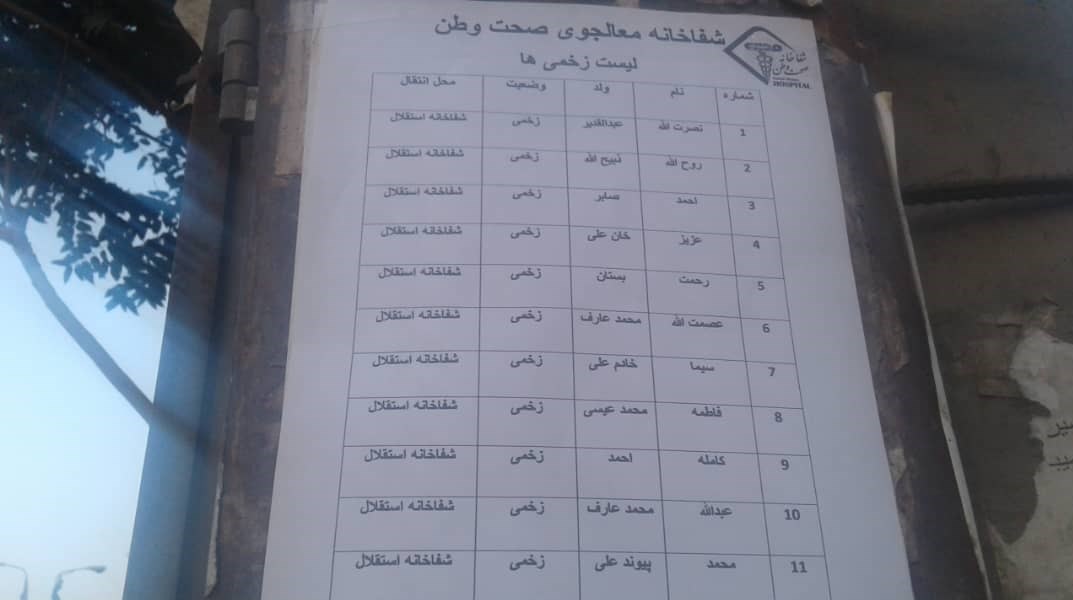 شفاخانه معالجوی صحت وطن
لیست زخمی ها
شفاخانه
صحت وطن
HOSPITAL
شماره نام ولد وضعیت محل انتقال
1 نصرت الله عبدالقدیر زخمی شفاخانه استقلال
2 روح الله ذبیح الله زخمی شفاخانه استقلال
3 احمد صابر زخمی شفاخانه استقلال
4 عزیز خان علی زخمی شفاخانه استقلال
5 رحمت بستان زخمی شفاخانه استقلال
6 عصمت الله محمد عارف زخمی شفاخانه استقلال
7 سیما خادم علی زخمی شفاخانه استقلال
8 فاطمه محمد عیسی زخمی شفاخانه استقلال
9 کامله احمد زخمی شفاخانه استقلال
10 عبدالله محمد عارف زخمی شفاخانه استقلال
11 محمد پیوند علی زخمی شفاخانه استقلال